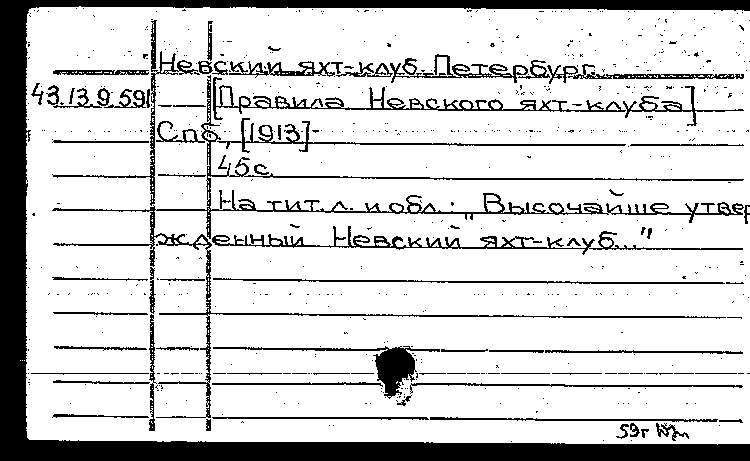 Невский яхт-клуб. Петербург.
43.13.9.591 [Правила Невского яхт-клуба]
Спб., [1913]-
45с.
На тит. л. и обл.: „Высочайше утвер
жденный Невский яхт-клуб..."
59г